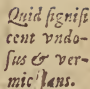 Quid signifi
cent vndo-
sus & ver-
mic lans.